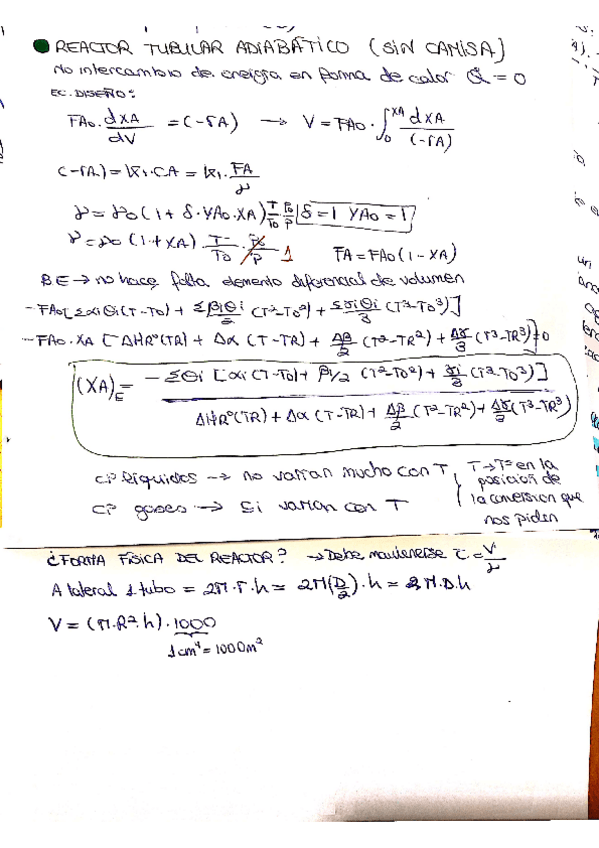 REACTOR TUBULAR ADIABÁTICO (SIN CAMISA)
No intercambio de energía en forma de calor Q̇ = 0
EC. DISEÑO:
FAo · dXA/dV = (-rA) → V = FAo · ∫₀^XA dXA/(-rA)
(-rA) = K1 · CA = K1 · FA/γ
γ = γo (1 + δ · YAo · XA) T/To · Po/P | δ = 1 YAo = 1
γ = γo (1 + XA) T/To · Po/P 1 FA = FAo (1 - XA)
BE → no hace falta elemento diferencial de volumen
- FAo [Σαi θi (T - To) + Σβiθi/2 (T² - To²) + Σγiθi/3 (T³ - To³)]
- FAo · XA [ΔHRº(TR) + Δα (T - TR) + Δβ/2 (T² - TR²) + Δγ/3 (T³ - TR³)] = 0
(XA)E = - Σθi [αi (T - To) + βi/2 (T² - To²) + γi/3 (T³ - To³)] / ΔHRº(TR) + Δα (T - TR) + Δβ/2 (T² - TR²) + Δγ/3 (T³ - TR³)
CP líquidos → no varían mucho con T
CP gases → Si varían con T
T → Tª en la
posición de
la conversión que
nos piden
¿FORMA FÍSICA DEL REACTOR? → Debe mantenerse τ = V/γ
A lateral 1 tubo = 2π · r · h = 2π (D/2) · h = 2 π · D · h
V = (π · R² · h) · 1000
1 cm⁴ = 1000 m²